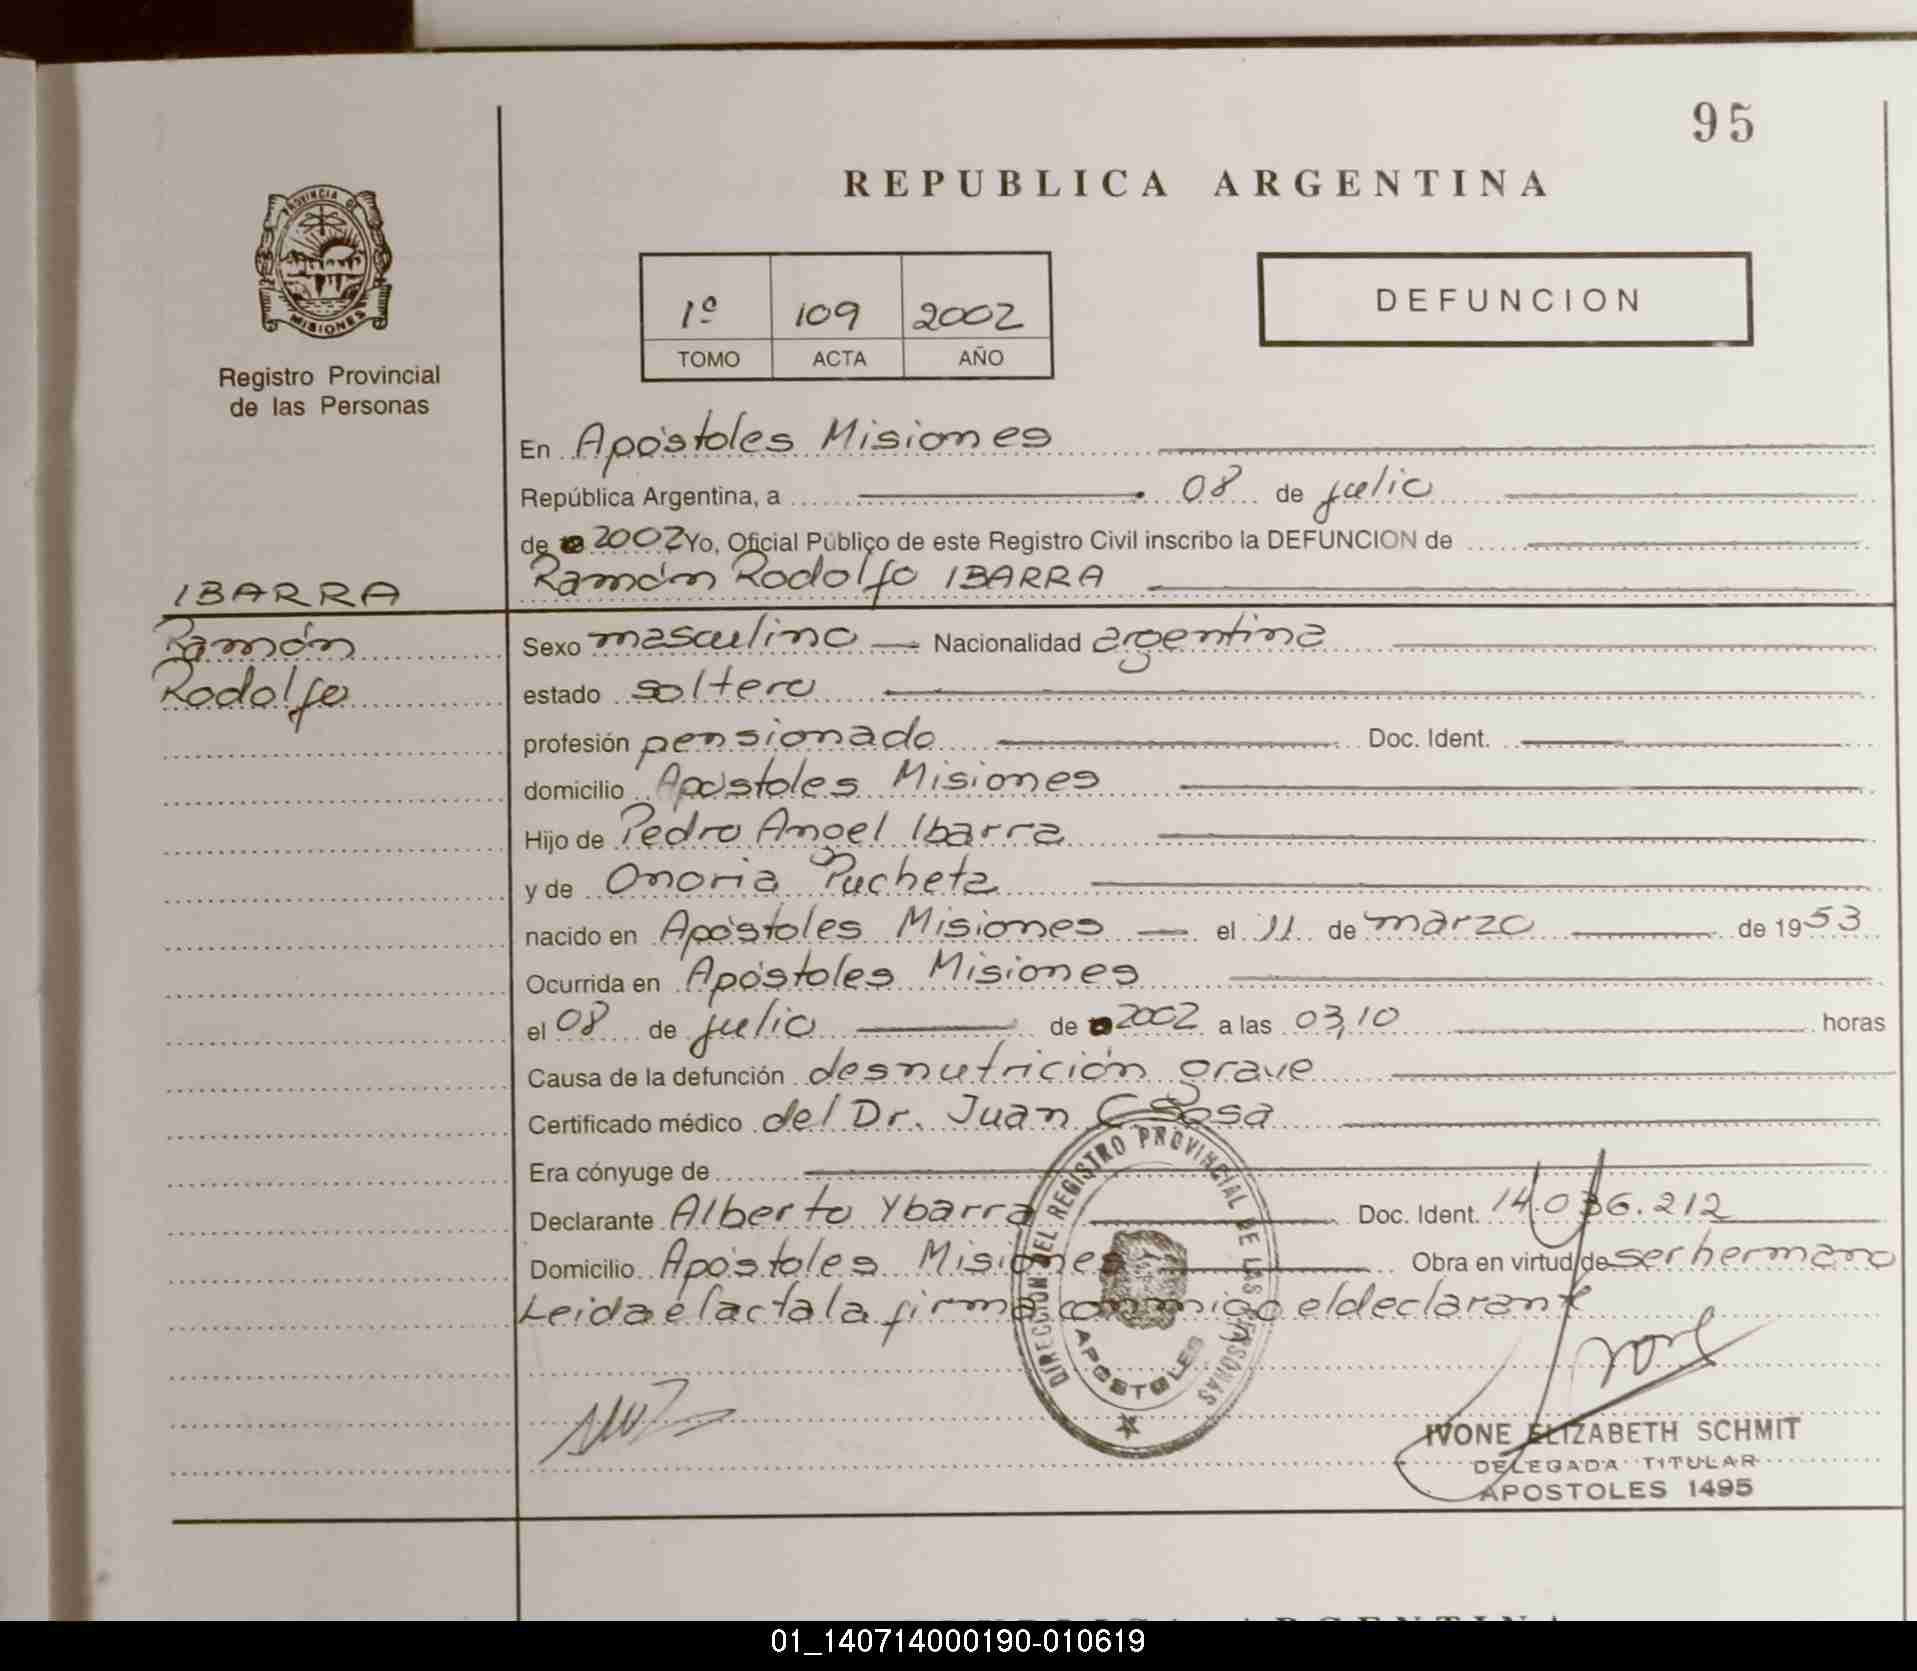 95
REPUBLICA ARGENTINA
PROVINCIA DE
MISIONES
Registro Provincial
de las Personas
1º 109 2002
TOMO ACTA AÑO
DEFUNCION
En Apóstoles Misiones
República Argentina, a 08 de julio
de 2002 Yo, Oficial Público de este Registro Civil inscribo la DEFUNCION de
Ramón Rodolfo IBARRA
IBARRA
Ramón
Rodolfo
Sexo masculino Nacionalidad argentina
estado soltero
profesión pensionado Doc. Ident.
domicilio Apóstoles Misiones
Hijo de Pedro Angel Ibarra
y de Onoria Pucheta
nacido en Apóstoles Misiones el 11 de marzo de 1953
Ocurrida en Apóstoles Misiones
el 08 de julio de 2002 a las 03,10 horas
Causa de la defunción desnutrición grave
Certificado médico del Dr. Juan C Sosa
Era cónyuge de
Declarante Alberto Ybarra Doc. Ident. 14.036.212
Domicilio Apóstoles Misiones Obra en virtud de ser hermano
Leida el acta la firma conmigo el declarante
DIRECCION DEL REGISTRO PROVINCIAL DE LAS PERSONAS
APOSTOLES
IVONE ELIZABETH SCHMIT
DELEGADA TITULAR
APOSTOLES 1495
REPUBLICA ARGENTINA
01_140714000190-010619